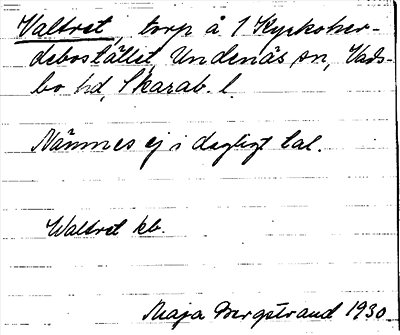 Valtret, torp å 1 Kyrkoher-
debostället, Undenäs sn, Vads-
bo hd, Skarab. l.
Nämnes ej i dagligt tal.
Waltret kb.
Maja Bergstrand 1930